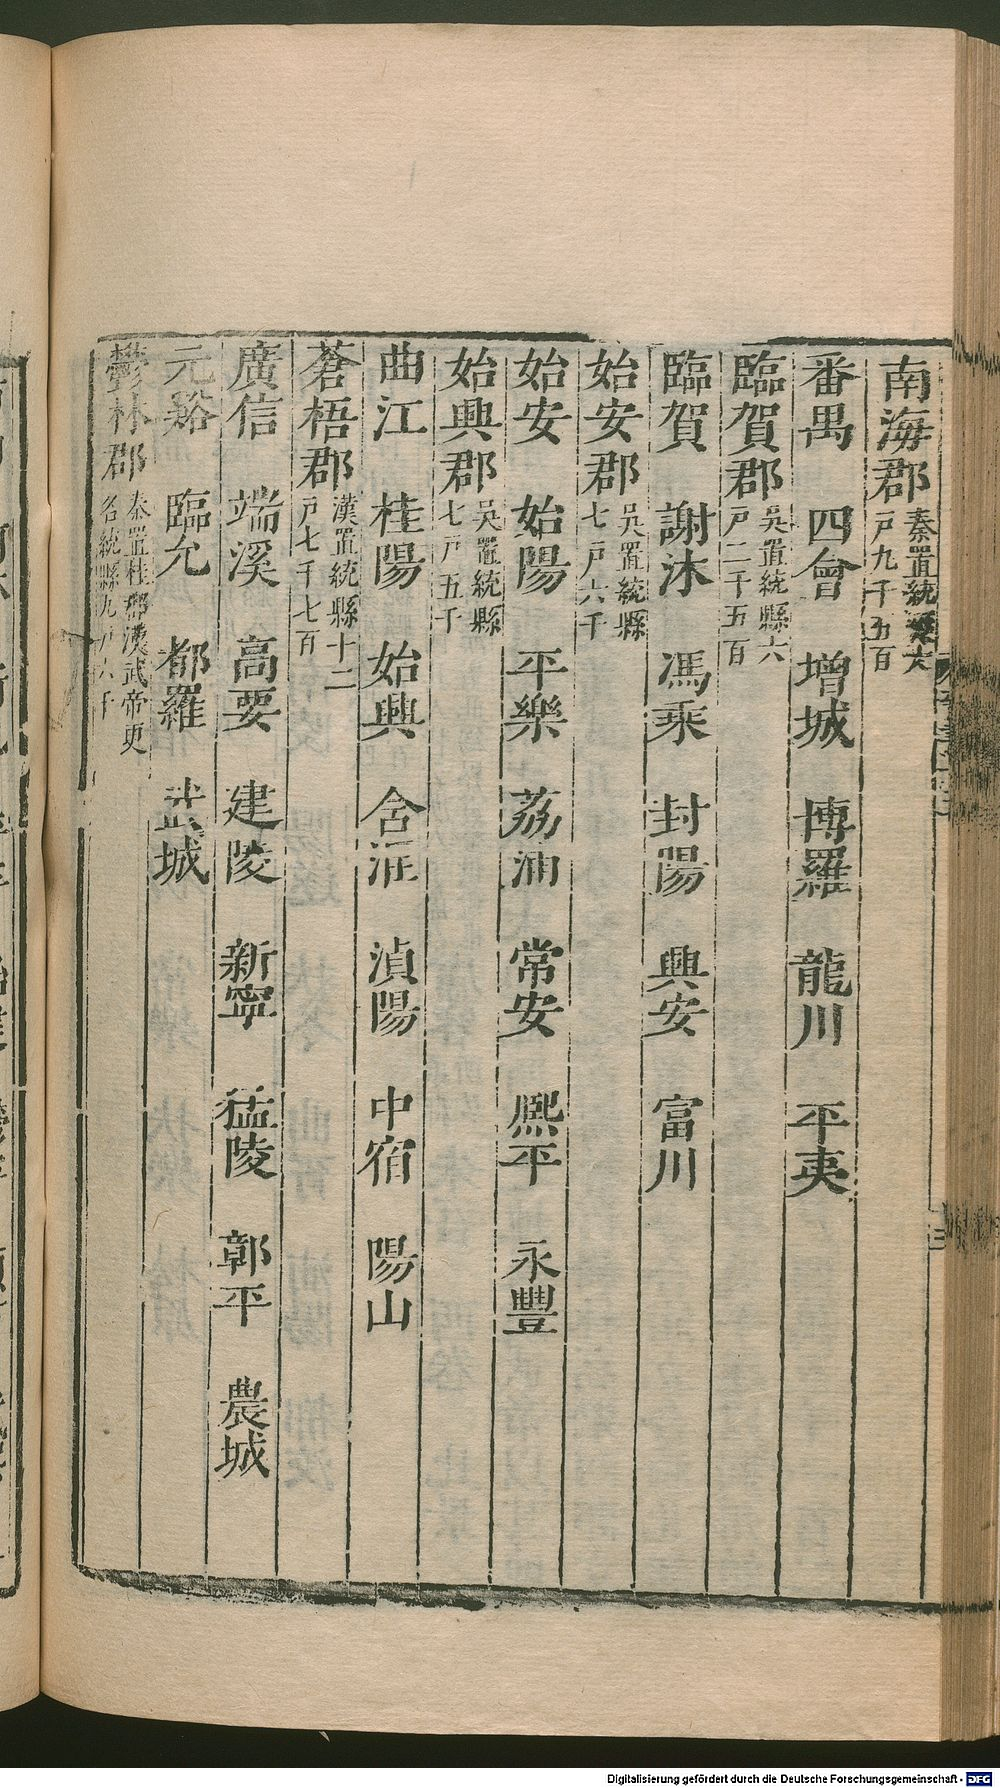 南海郡 秦置統縣六戸九千五百
番禺 四會 增城 博羅 龍川 平夷
臨賀郡 吳置統縣六戸二千五百
臨賀 謝沐 馮乘 封陽 興安 富川
始安郡 吳置統縣七戸六千
始安 始陽 平樂 荔浦 常安 熙平 永豐
始興郡 吳置統縣七戸五千
曲江 桂陽 始興 含洭 湞陽 中宿 陽山
蒼梧郡 漢置統縣十二戸七千七百
廣信 端溪 高要 建陵 新寧 猛陵 鄣平 農城
元谿 臨允 都羅 武城
鬱林郡 秦置桂郡漢武帝更名統縣九戸六千
Digitalisierung gefördert durch die Deutsche Forschungsgemeinschaft - DFG